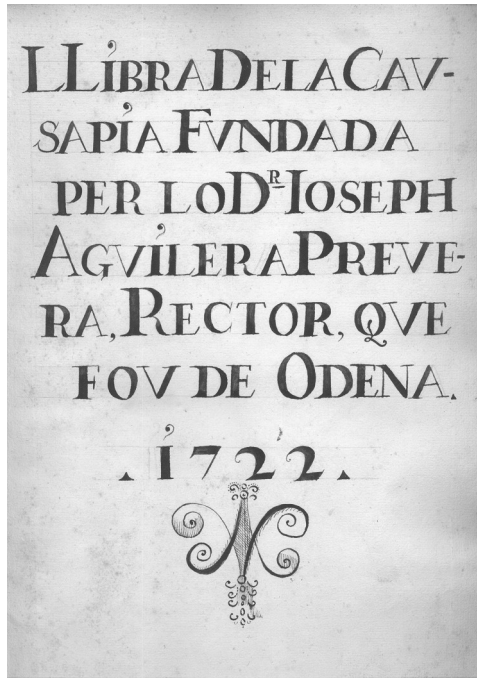 LLIBRA DE LA CAV-
SAPIA FVNDADA
PER LO DR IOSEPH
AGVILERA PREVE-
RA, RECTOR, QVE
FOV DE ODENA.
.1722.